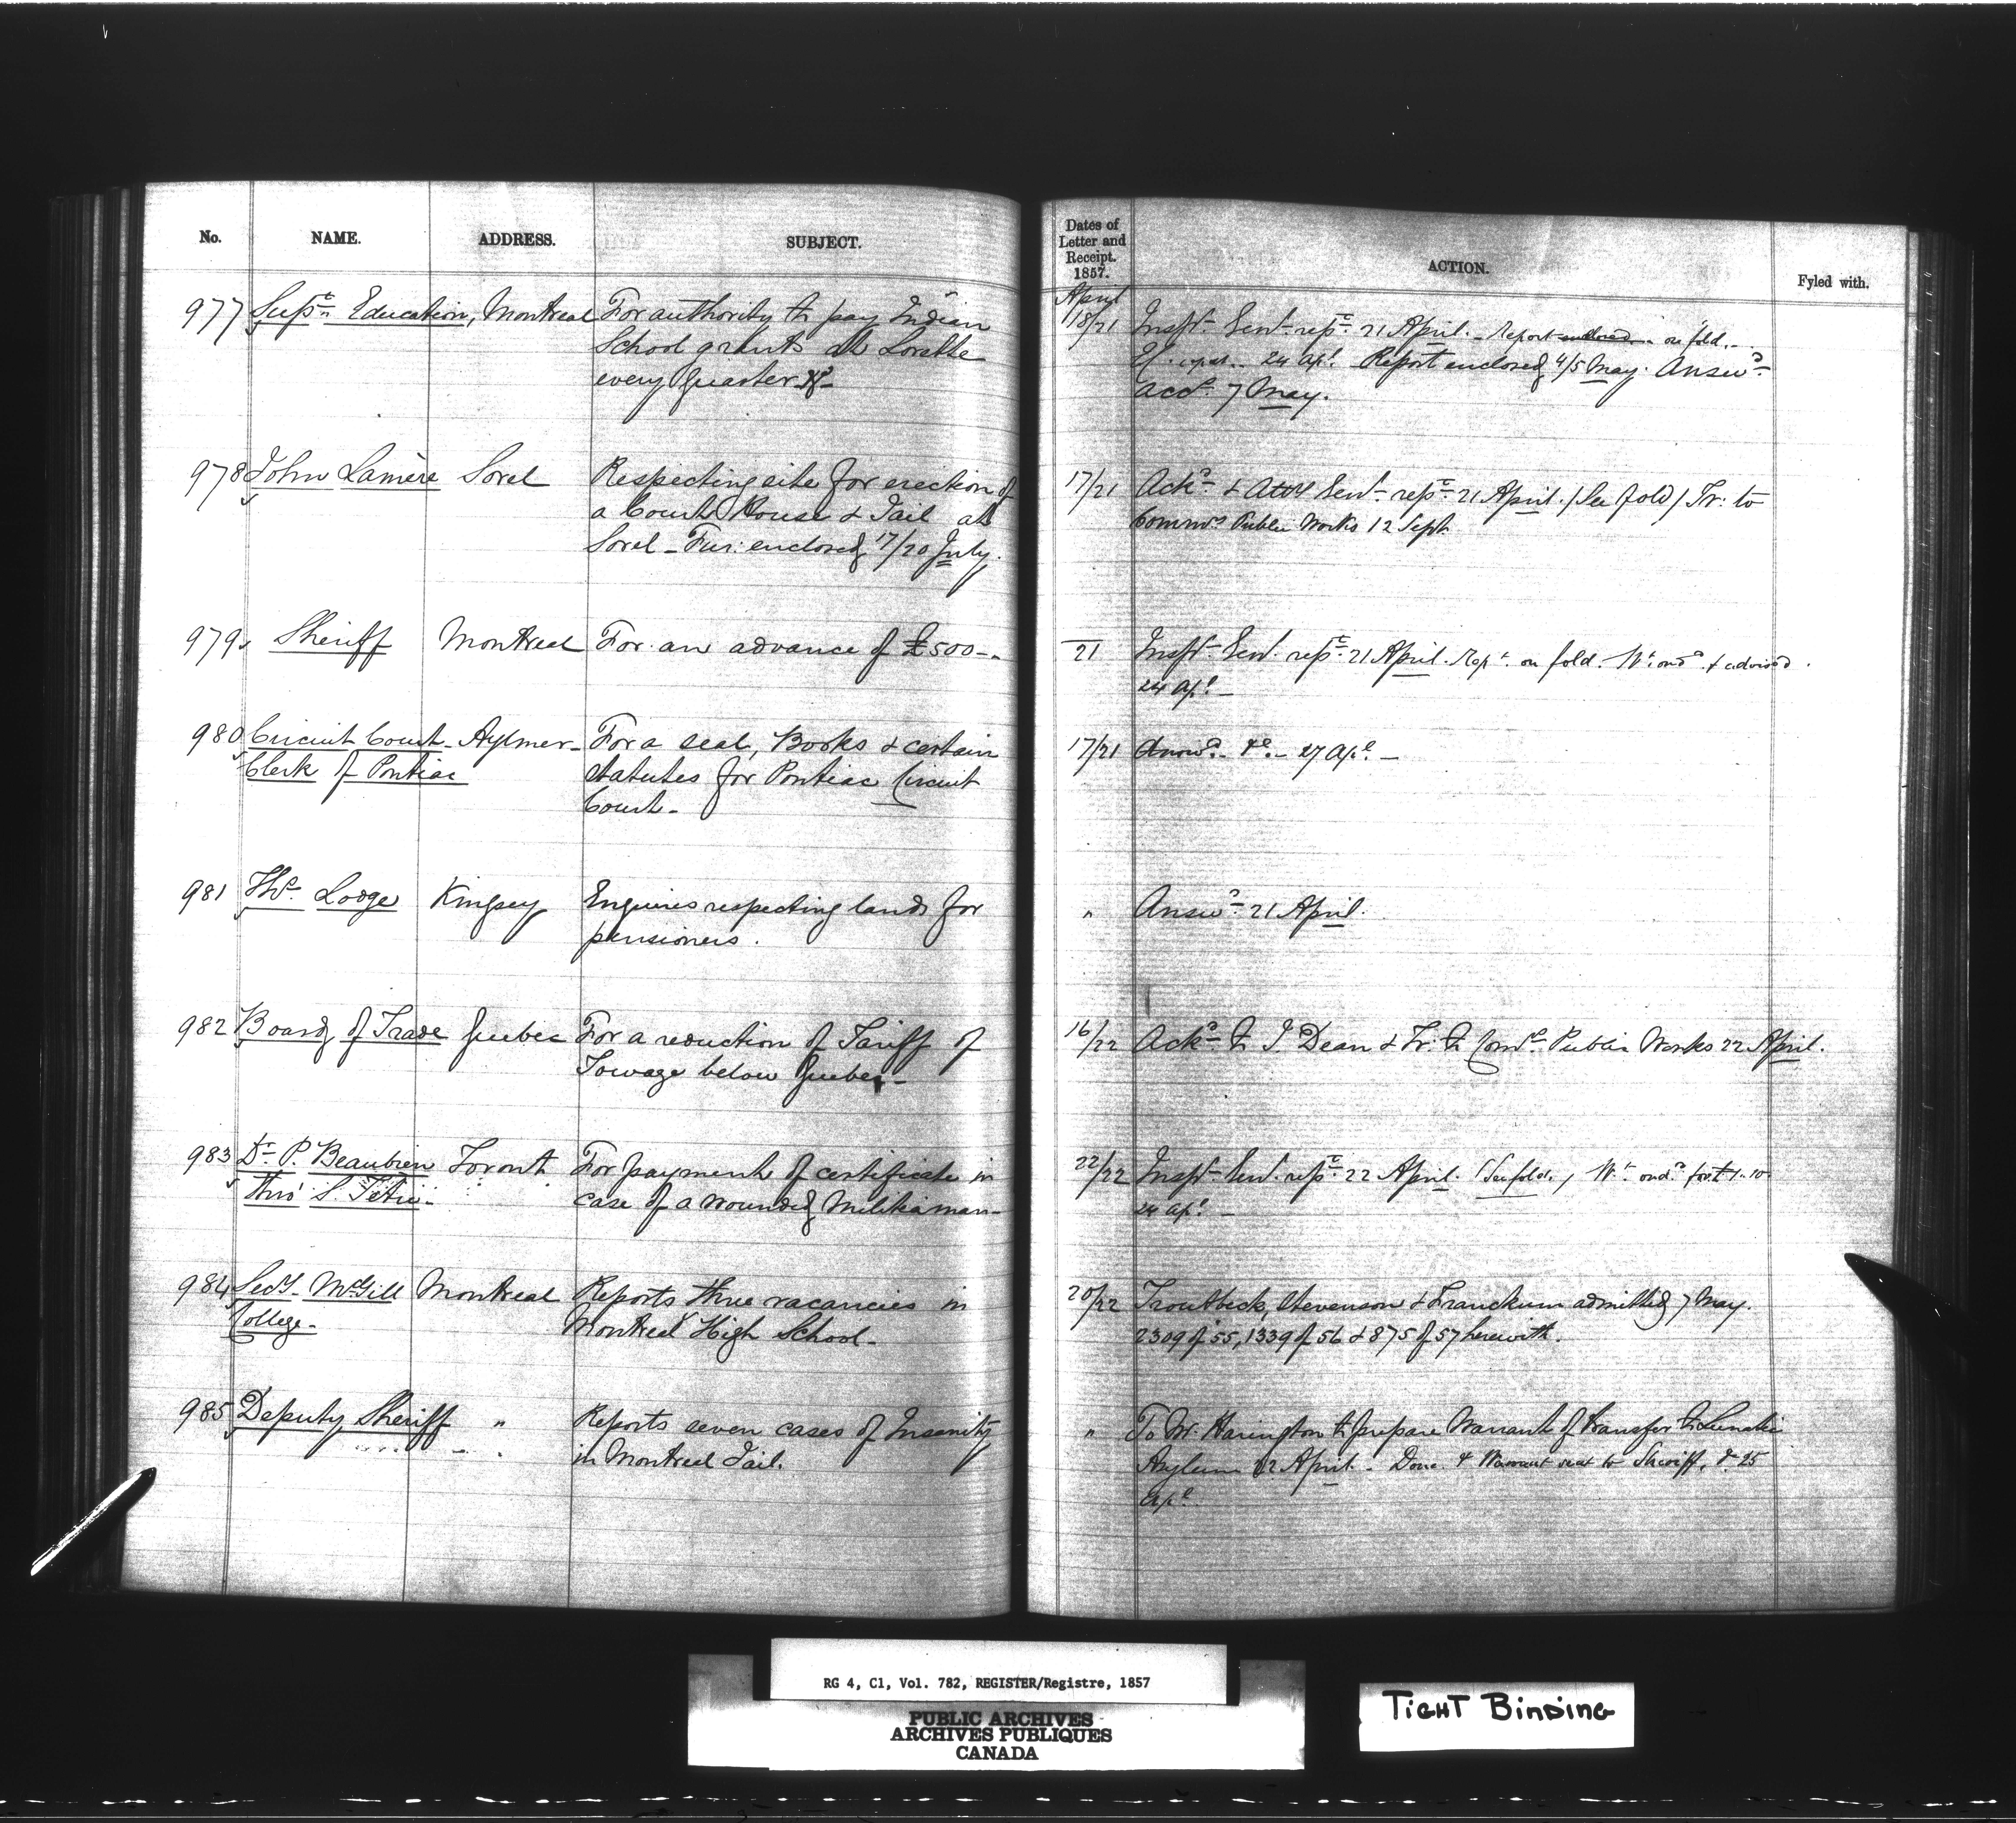 No. NAME. ADDRESS. SUBJECT.
977 Supt. Education, Montreal For authority to pay Indian
School grants at Lorette
every Quarter &c
978 John Lamère Sorel Respecting site for erection of
a Court House & Jail at
Sorel - Fur: enclosed 17/20 July.
979 Sheriff Montreal For an advance of £500-.
980 Circuit Court - Aylmer - For a seal, Books & certain
Clerk of Pontiac statutes for Pontiac Circuit
Court -
981 Ths. Lodge Kingsey Enquires respecting lands for
pensioners.
982 Board of Trade Quebec For a reduction of Tariff of
Towage below Quebec -
983 Dr. P. Beaubien Toronto For payment of certificate in
thro' S. case of a wounded Militiaman -
984 Secy. McGill Montreal Reports three vacancies in
College - Montreal High School -
985 Deputy Sheriff " Reports seven cases of Insanity
in Montreal Jail.
Dates of
Letter and
Receipt.
1857. ACTION. Fyled with.
April
18/21 Inspr. Genl. repe. 21 April. - Report enclosed on fold. -
24 Apl. Report enclosed 4/5 May. Answd.
accd. 7 May.
17/21 Ackd. & Atty Genl. repe. 21 April. (See fold) Tr: to
Commrs. Public Works 12 Sept.
21 Inspr. Genl. repe. 21 April. Rept. on fold. Wt. ordd. & advised.
24 Apl. -
17/21 Answd. &c. - 27 Apl. -
" Answd. 21 April.
16/22 Ackd. to J. Dean & Tr. to Comrs. Public Works 22 April.
22/22 Inspr. Genl. repe. 22 April. (See fold.) Wt. ordd. for
24 Apl. -
20/22 Troutbeck, Stevenson & Franckum admitted 7 May.
2309 of 55, 1339 of 56 & 875 of 57 herewith.
" To Mr. Harington to prepare Warrant of transfer to Lunatic
Asylum 22 April. - Done & Warrant sent to Sheriff, 25
Apl.
RG 4, C1, Vol. 782, REGISTER/Registre, 1857
PUBLIC ARCHIVES
ARCHIVES PUBLIQUES
CANADA
TIGHT BINDING